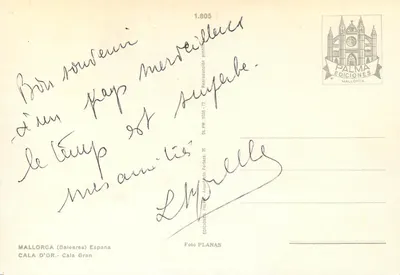 1.805
Bon souvenir
d'un pays merveilleux
le temps est superbe.
mes amitiés
PALMA
EDICIONES
MALLORCA (Baleares) España
CALA D'OR.- Cala Gran
Foto PLANAS